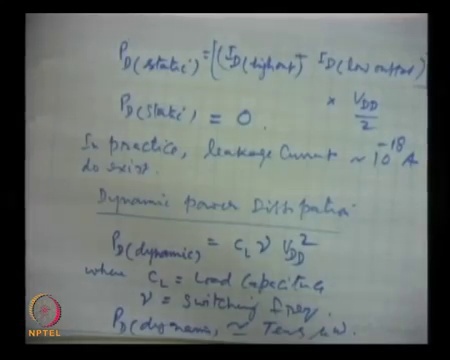 P_D(static) = [(I_D(high out) + I_D(low output)
P_D(static) = 0. × V_DD/2
In practice, leakage current ~ 10^-18 A
do exist.
Dynamic power Dissipation
P_D(dynamic) = C_L ν V_DD^2
where C_L = Load Capacitance
ν = switching freq.
P_D(dynamic) ≃ Tens
NPTEL